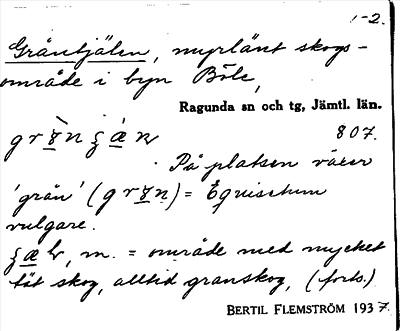 1-2.
Gråntjälen, myrlänt skogs-
område i byn Böle,
Ragunda sn och tg, Jämtl. län.
807.
På platsen växer
'grån' = Equisetum
vulgare.
m. = område med mycket
tät skog, alltid granskog, (forts.)
BERTIL FLEMSTRÖM 1937.